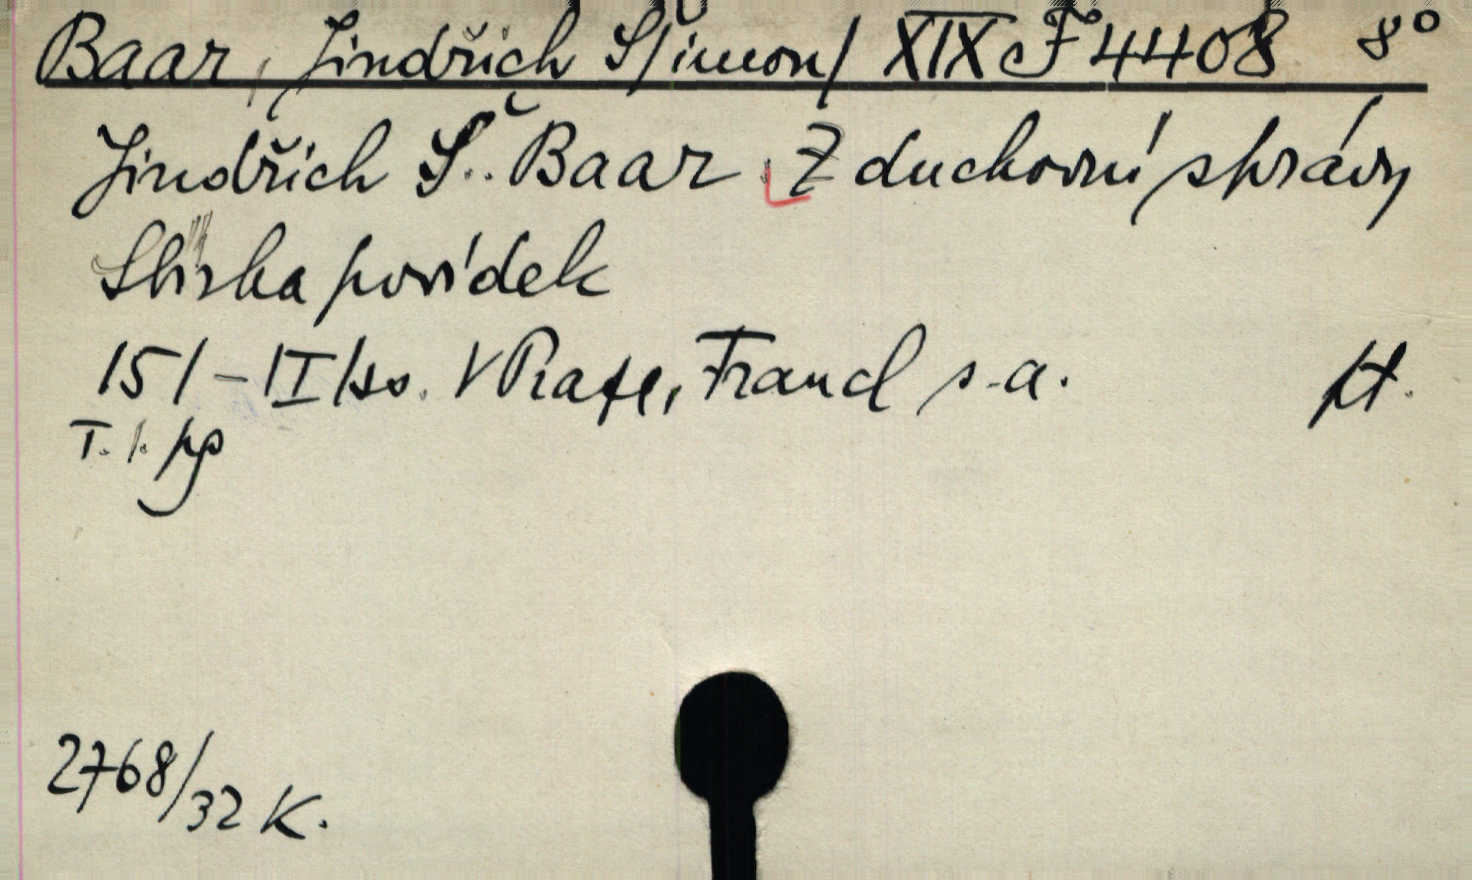 Baar, Jindřich Š/imon/ XIX F 4408 8°
Jindřich Š. Baar. Z duchovní správy
Sbírka povídek
151-/I/ss. V Praze, Francl s.a. fl.
T. 1. pp
2768/32 K.